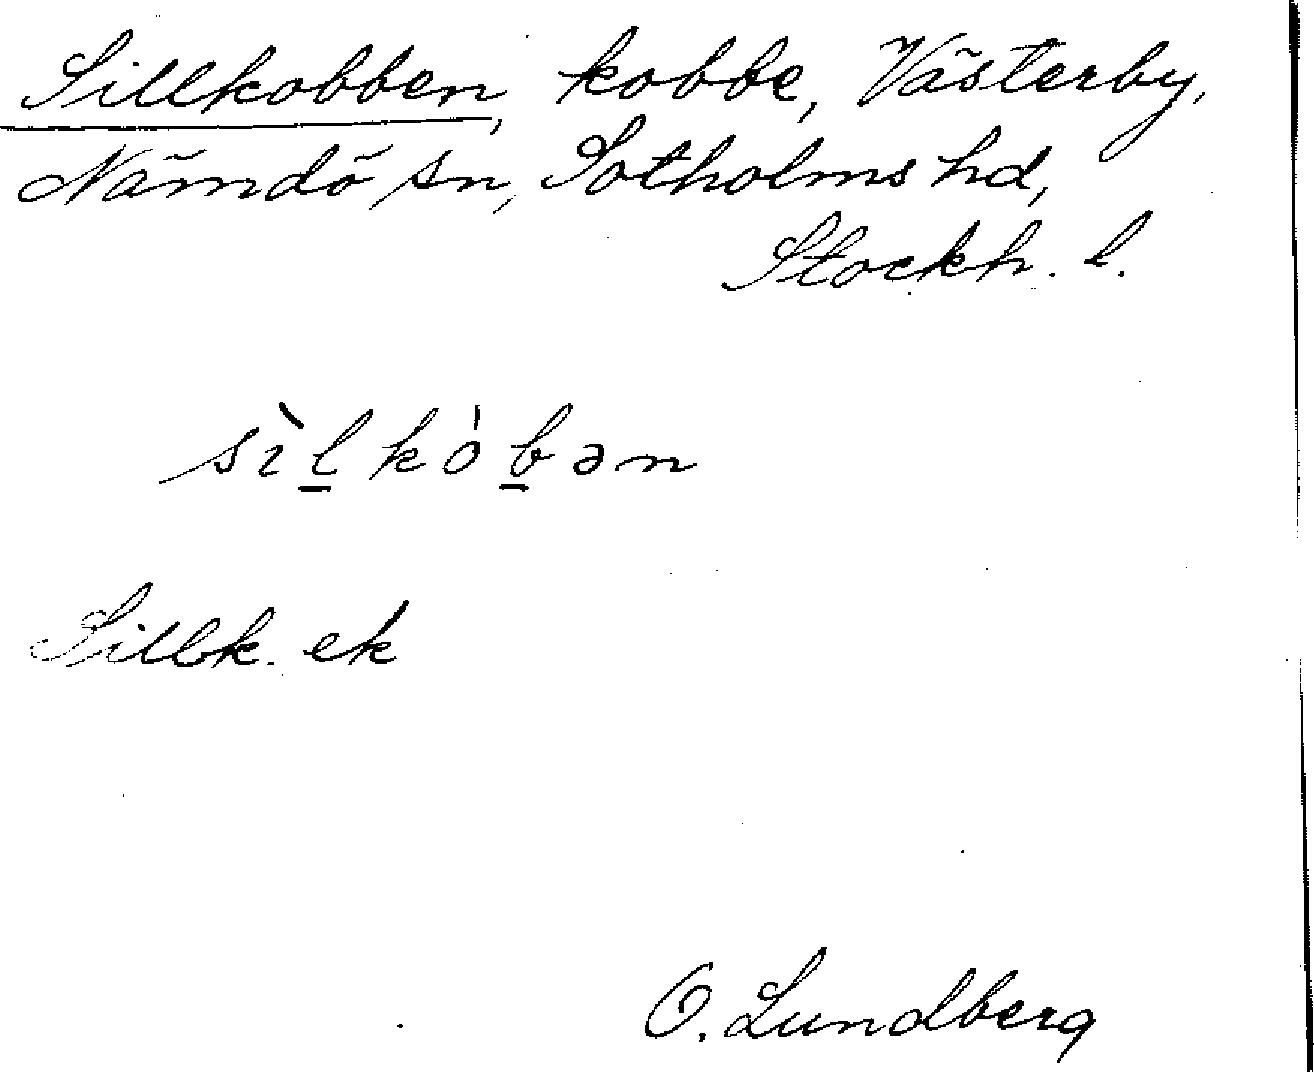 Sillkobben, kobbe, Västerby,
Nämdö sn, Sotholms hd,
Stockh. l.
sìl̲kób̲ən
Sillk. ek
O. Lundberg